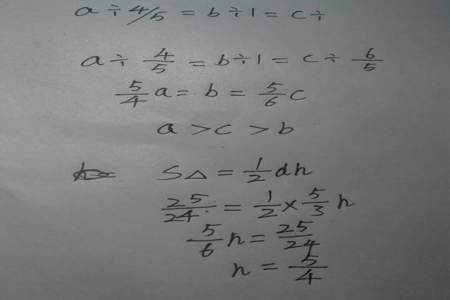 a ÷ 4/5 = b ÷ 1 = c ÷
a ÷ 4/5 = b ÷ 1 = c ÷ 6/5
5/4 a = b = 5/6 c
a > c > b
S△ = 1/2 ah
25/24 = 1/2 × 5/3 h
5/6 h = 25/24
h = 5/4